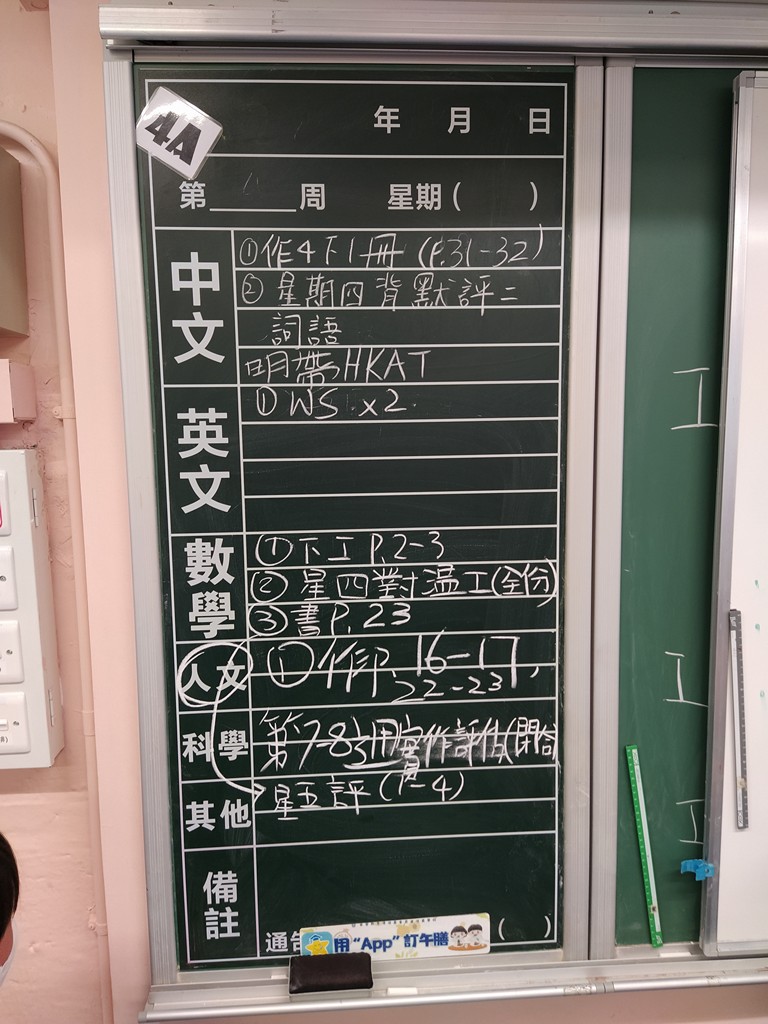 4A
年 月 日
第 周 星期( )
中文
①作4下1冊 (P.31-32)
②星期四背默評二
詞語
明帶HKAT
英文
①WS x2.
數學
①下工P.2-3
②星四對溫工(全份)
③書P.23
人文
①作P. 16-17,
22-23
科學
第7-8
實作評估
其他
星五評(1-4)
備註
通告
( )
用“App”訂午膳
工
工
工